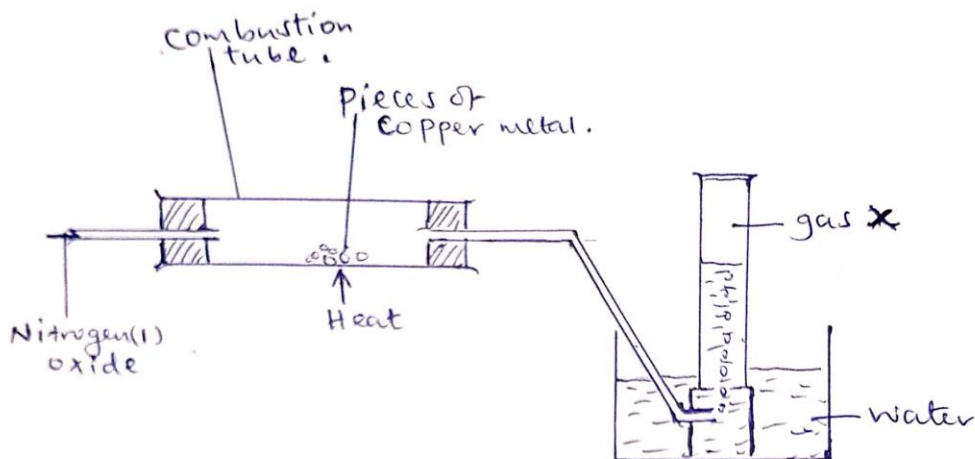 combustion
tube.
pieces of
copper metal.
gas X
Heat
Nitrogen(I)
oxide
water